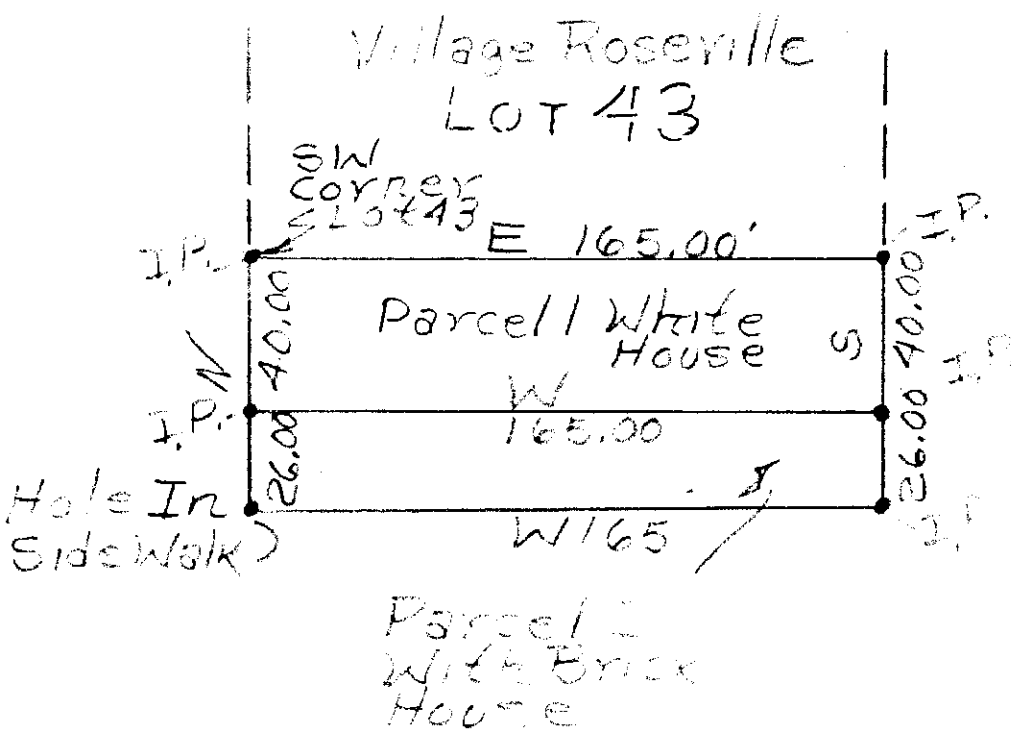 Village Roseville
LOT 43
SW
Corner
Lot 43
I.P.
E 165.00'
I.P.
N
40.00
Parcel 1 White
House
S
40.00
I.P.
W
165.00
I.P.
26.00
26.00
Hole In
SideWalk
W165
I.P
Parcel
With Brick
House